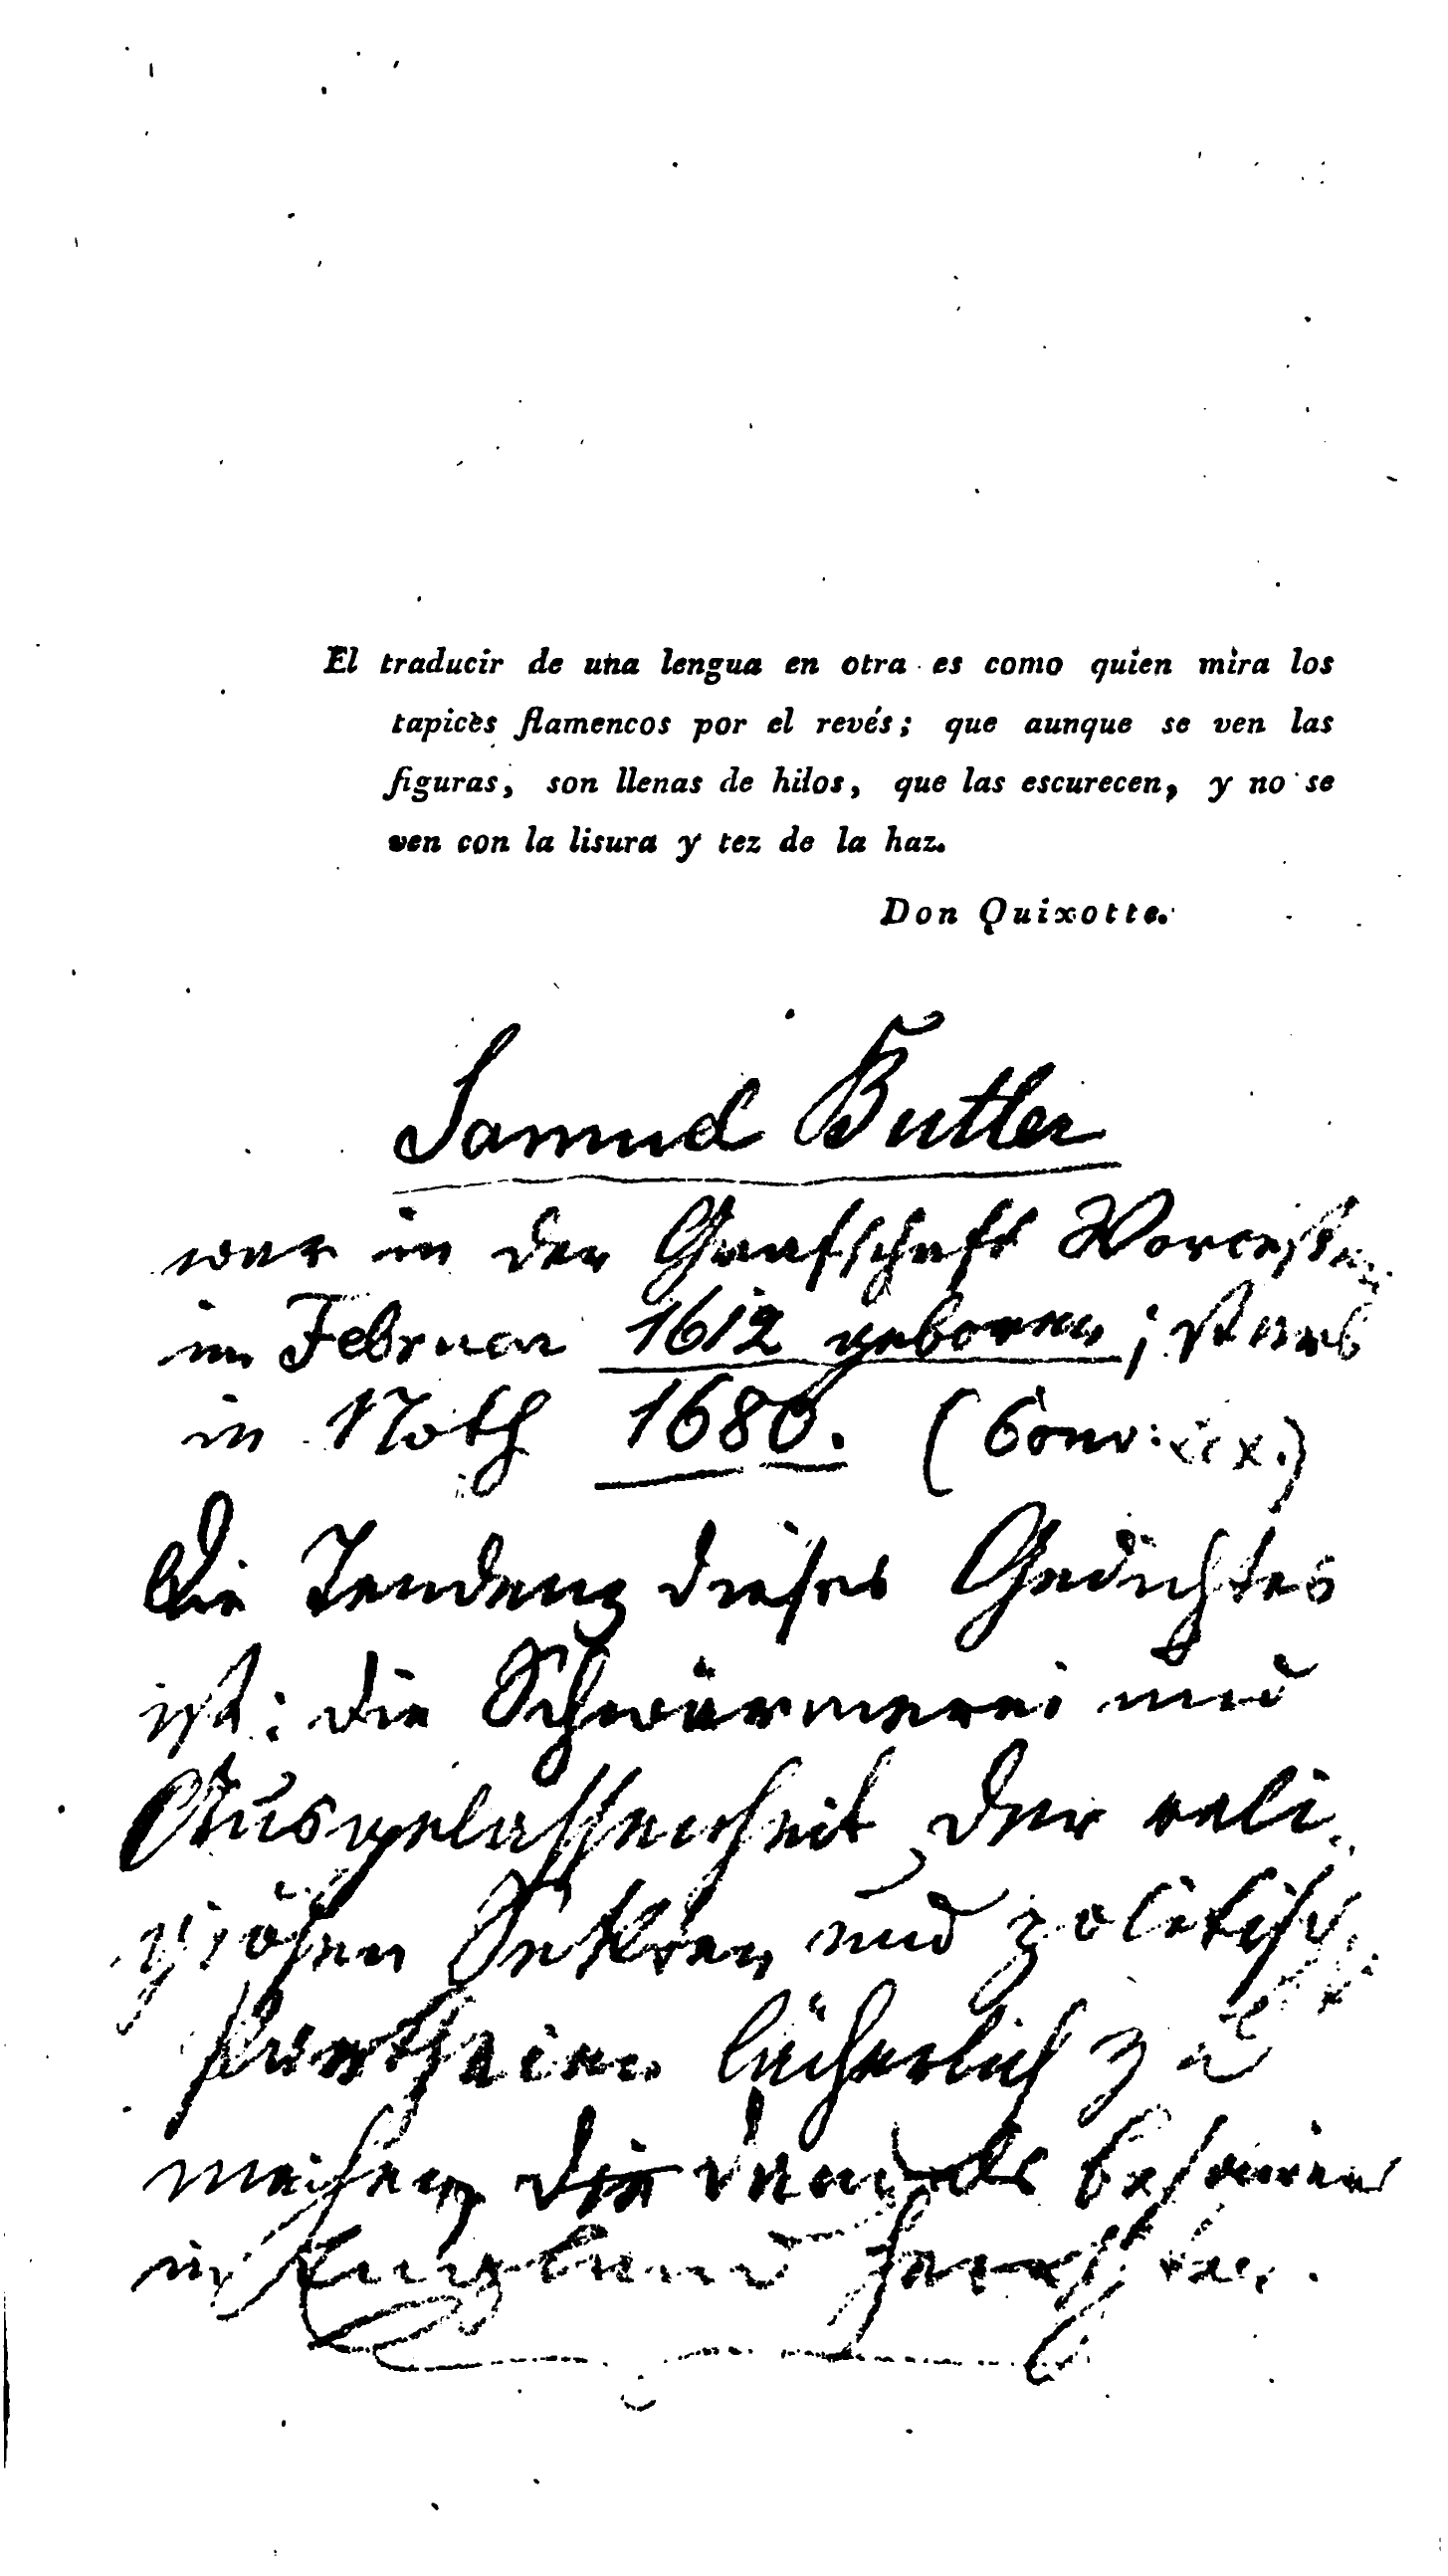 El traducir de una lengua en otra es como quien mira los
tapices flamencos por el revés; que aunque se ven las
figuras, son llenas de hilos, que las escurecen, y no se
ven con la lisura y tez de la haz.
Don Quixotte.
Samuel Butler
war in der Grafschaft Worcester
im Februar 1612 geboren; starb
in Noth 1680. (Conv: Lex.)
Die Tendenz dieses Gedichtes
ist: die Schwärmerei und
Ausgelassenheit der reli-
giösen Sekten und politischen
Partheien lächerlich zu
machen, die damals besonders
in England herrschten.